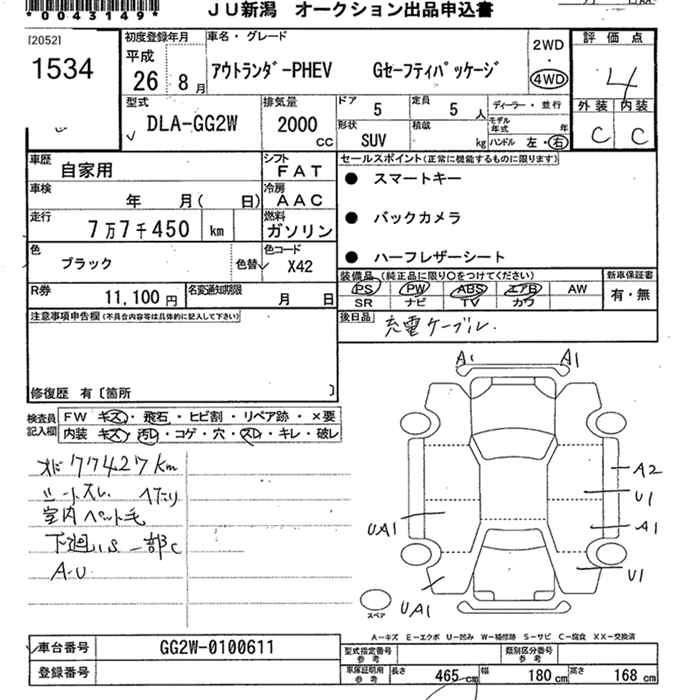 *0043149*
JU新潟 オークション出品申込書
[2052]
1534
初度登録年月
平成
26 8 月
車名・グレード
アウトランダｰPHEV Gセーフティパッケージ
2WD
・
4WD
評価点
4
外装 内装
C C
型式
DLA-GG2W
排気量
2000
cc
ドア 5
定員 5 人
形状
SUV
積載
kg
ディーラー・並行
モデル年式 年
ハンドル 左・右
車歴
自家用
シフト
FAT
車検
年 月( 日)
冷房
AAC
走行
7万7千450 km
燃料
ガソリン
色
ブラック
色替
色コード
X42
R券
11,100円
名変通知期限
月 日
セールスポイント(正常に機能するものに限ります)
● スマートキー
● バックカメラ
● ハーフレザーシート
装備品(純正品に限り○をつけてください)
PS PW ABS エアB AW
SR ナビ TV カワ
新車保証書
有・無
後日品
充電ケーブル.
注意事項申告欄(不具合内容等は具体的に記入して下さい)
修復歴 有〔箇所 〕
検査員
記入欄
FW キズ・飛石・ヒビ割・リペア跡・×要
内装 キズ・汚レ・コゲ・穴・スレ・キレ・破レ
77427km
シートスレ ヘたり
室内ペット毛
下廻りS 一部C
A-U
A1 A1
A2
U1
A1
U1
UA1
UA1
スペア
A-キズ E-エクボ U-凹み W-補修跡 S-サビ C-腐食 XX-交換済
車台番号 GG2W-0100611
登録番号
型式指定番号
参考
類別区分番号
参考
車庫証明用
参考
長さ 465 cm 幅 180 cm 高さ 168 cm